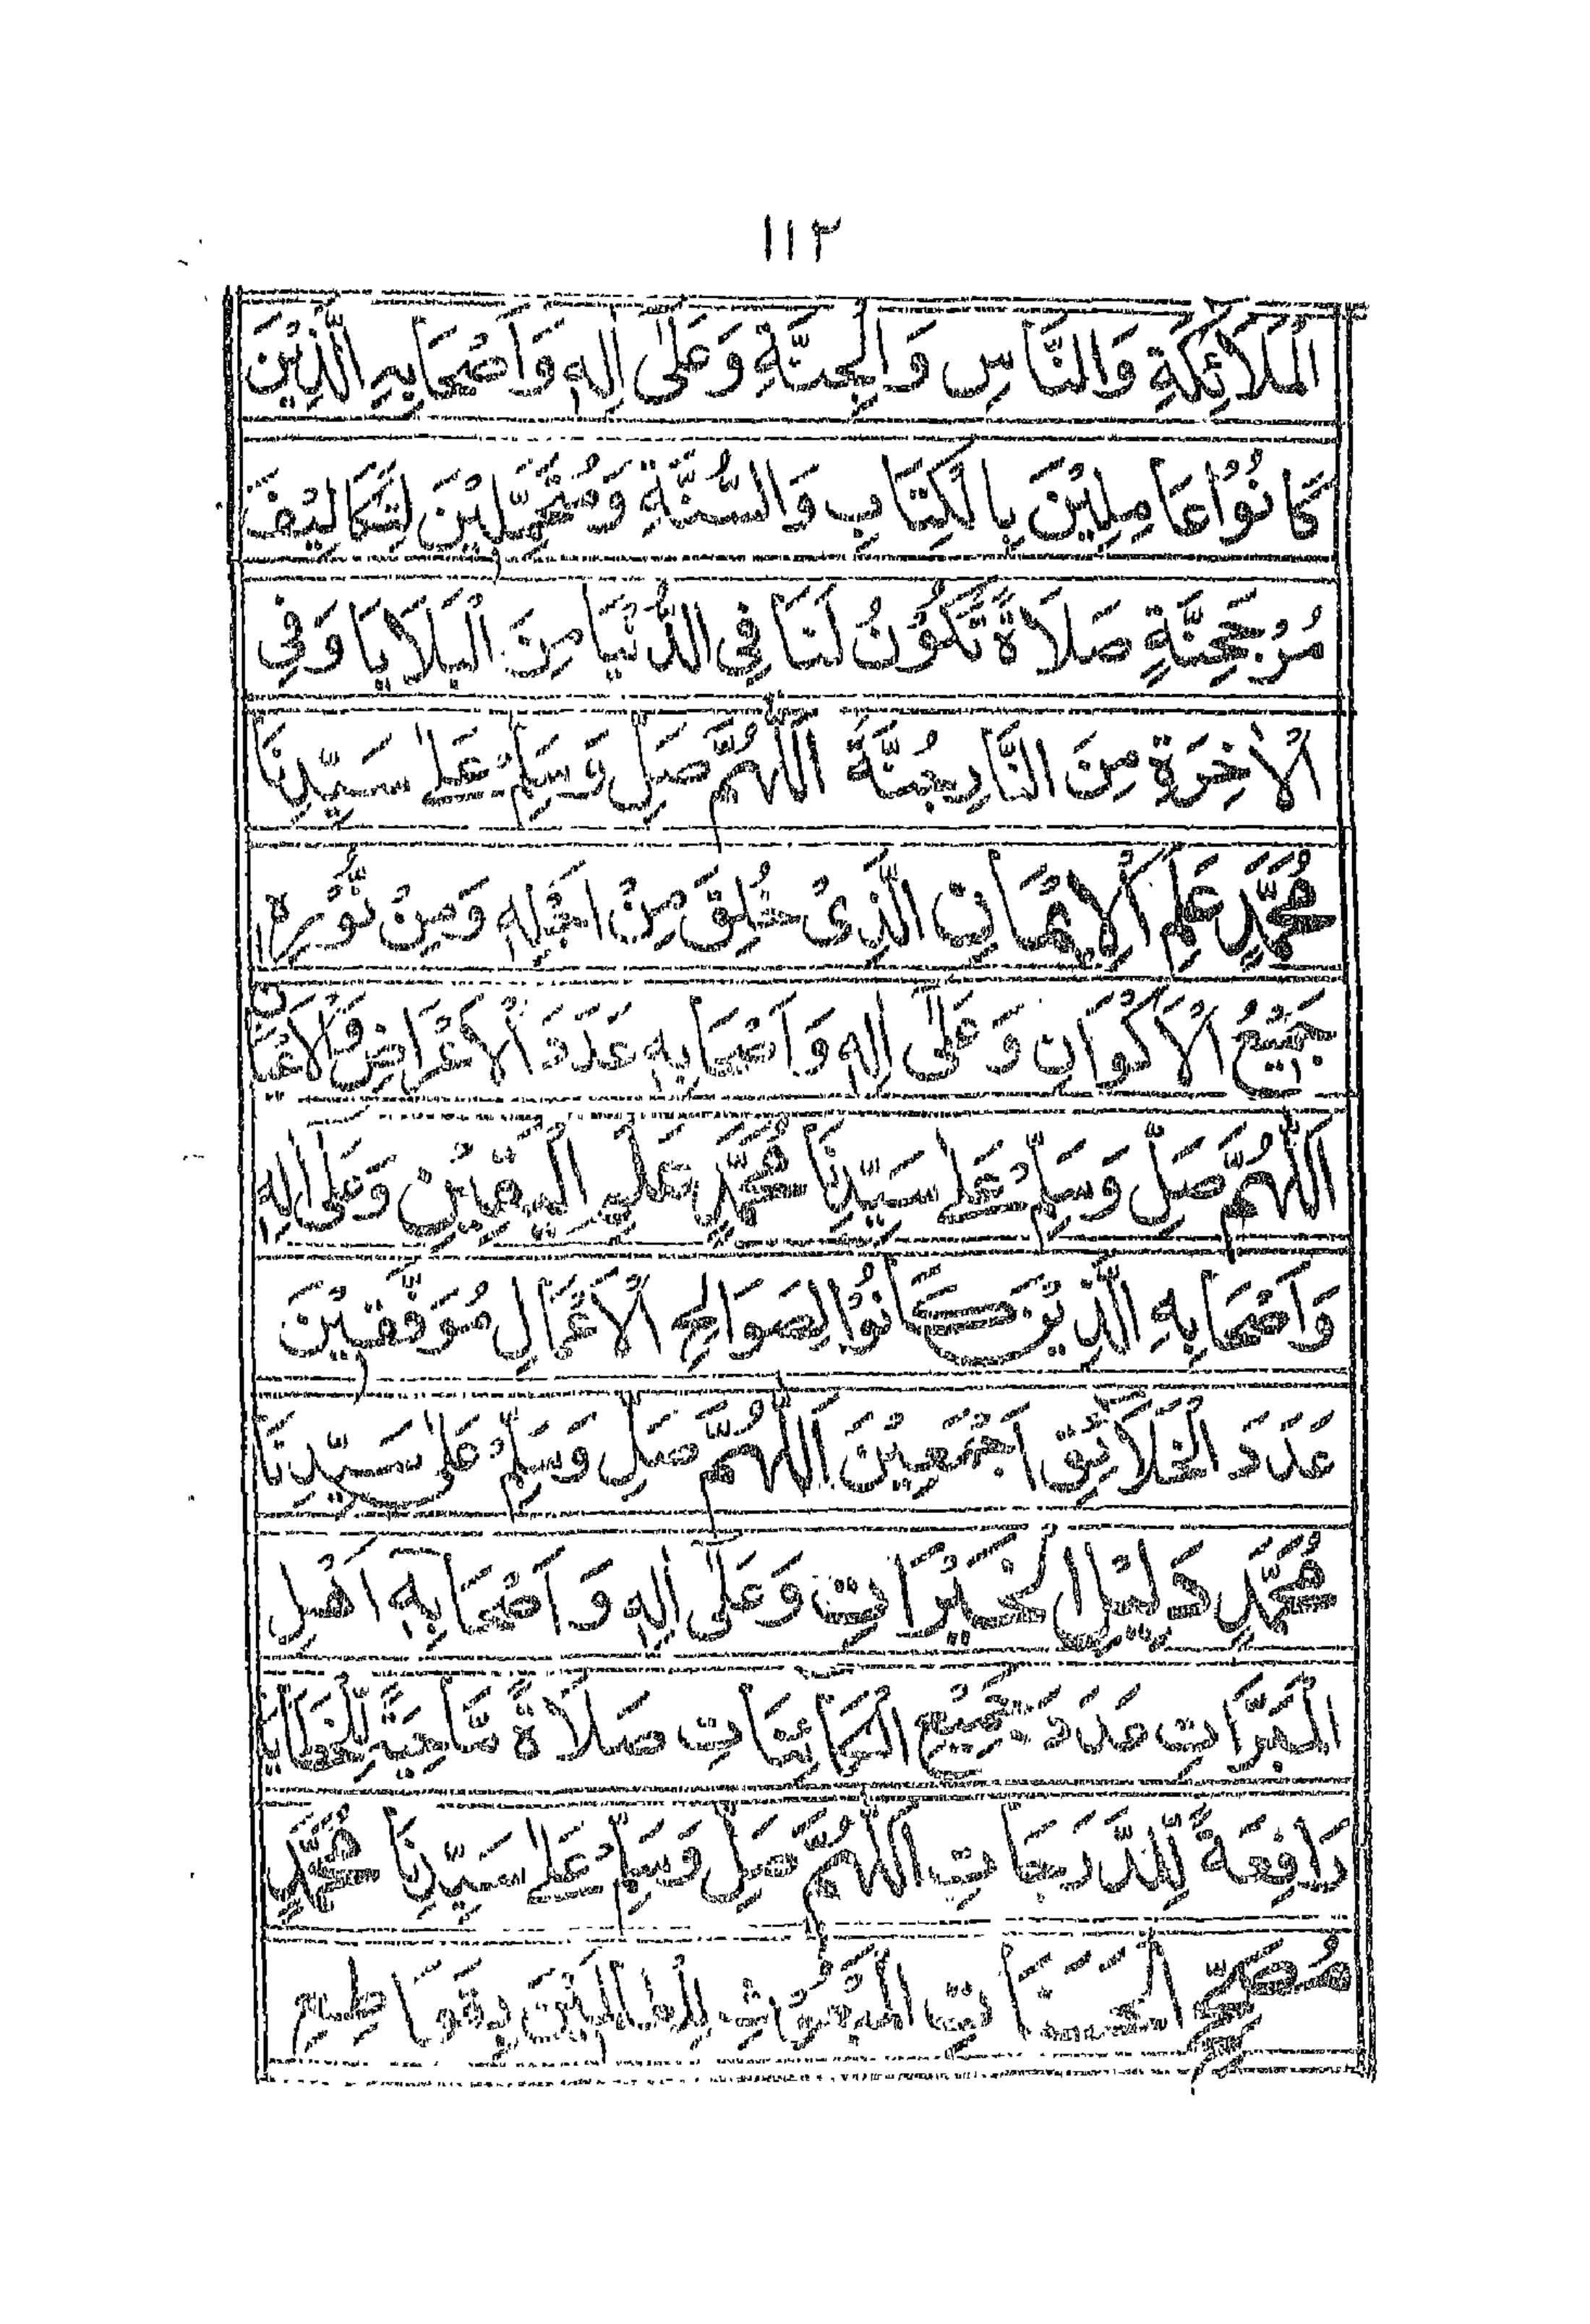 ١١٢
الْمَلَائِكَةِ وَالنَّاسِ وَالْجِنَّةِ وَعَلٰى اٰلِهٖ وَاَصْحَابِهِ الَّذِيْنَ
كَانُوْا عَامِلِيْنَ بِالْكِتَابِ وَالسُّنَّةِ وَمُتَحَمِّلِيْنَ لِتَكَالِيْفَ
مُرْجَحِنَّةٍ صَلَاةً تَكُوْنُ لَنَا فِي الدُّنْيَا مِنَ الْبَلَايَا وَفِي
الْاٰخِرَةِ مِنَ النَّارِ جُنَّةً اَللّٰهُمَّ صَلِّ وَسَلِّمْ عَلٰى سَيِّدِنَا
مُحَمَّدٍ عَلَمِ الْاِيْمَانِ الَّذِيْ خُلِقَ مِنْ اَجْلِهٖ وَمِنْ نُّوْرِهٖ
جَمِيْعُ الْاَكْوَانِ وَعَلٰى اٰلِهٖ وَاَصْحَابِهٖ عَدَدَ الْاَعْرَاضِ وَالْاَعْيَانِ
اَللّٰهُمَّ صَلِّ وَسَلِّمْ عَلٰى سَيِّدِنَا مُحَمَّدٍ عَلَمِ الْيَقِيْنِ وَعَلٰى اٰلِهٖ
وَاَصْحَابِهِ الَّذِيْنَ كَانُوْا لِصَوَالِحِ الْاَعْمَالِ مُوَفَّقِيْنَ
عَدَدَ الْخَلَآئِقِ اَجْمَعِيْنَ اَللّٰهُمَّ صَلِّ وَسَلِّمْ عَلٰى سَيِّدِنَا
مُحَمَّدٍ دَلِيْلِ الْخَيْرَاتِ وَعَلٰى اٰلِهٖ وَاَصْحَابِهٖ اَهْلِ
الْمَبَرَّاتِ عَدَدَ جَمِيْعِ الْكَائِنَاتِ صَلَاةً مَّاحِيَةً لِّلْخَطَايَا
رَافِعَةً لِّلدَّرَجَاتِ اَللّٰهُمَّ صَلِّ وَسَلِّمْ عَلٰى سَيِّدِنَا مُحَمَّدٍ
مُصَحِّحِ الْحَسَنَاتِ الْمَبْعُوْثِ لِلظَّالِمِيْنَ بِقَوَاطِعِ